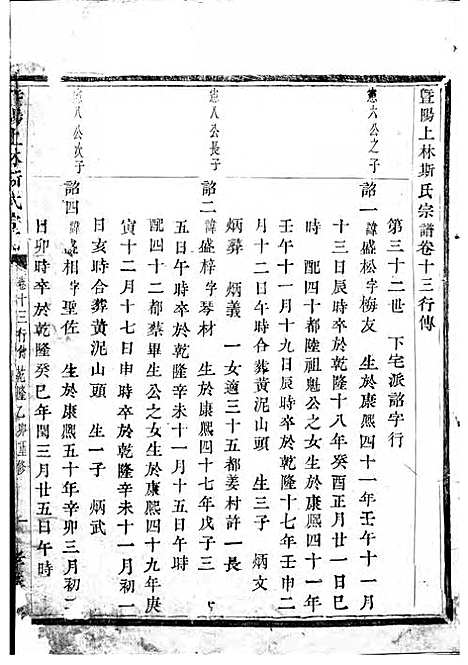 暨陽上林斯氏宗譜卷十三行傳
第三十二世 下宅派詔字行
憲六公之子
詔一 諱盛松字梅友 生於康熙四十一年壬午十一月
十三日辰時卒於乾隆十八年癸酉正月廿一日巳
時 配四十都陸祖魁公之女生於康熙四十一年
壬午十一月十九日辰時卒於乾隆十七年壬申二
月十二日午時合葬黃泥山頭 生三子 炳文
炳葬 炳義 一女適三十五都姜村許一長
憲八公長子
詔二 諱盛梓字琴材 生於康熙四十七年戊子三
月五日午時卒於乾隆辛未十一月十五日午時
配四十二都蔡畢生公之女生於康熙四十九年庚
寅十二月十七日申時卒於乾隆辛未十一月初一
日亥時合葬黃泥山頭 生一子 炳武
憲八公次子
詔四 諱盛相字聖佐 生於康熙五十年辛卯三月初二
日卯時卒於乾隆癸巳年閏三月廿五日午時
暨陽上林斯氏宗
卷十三行傳 乾隆乙卯重修
一